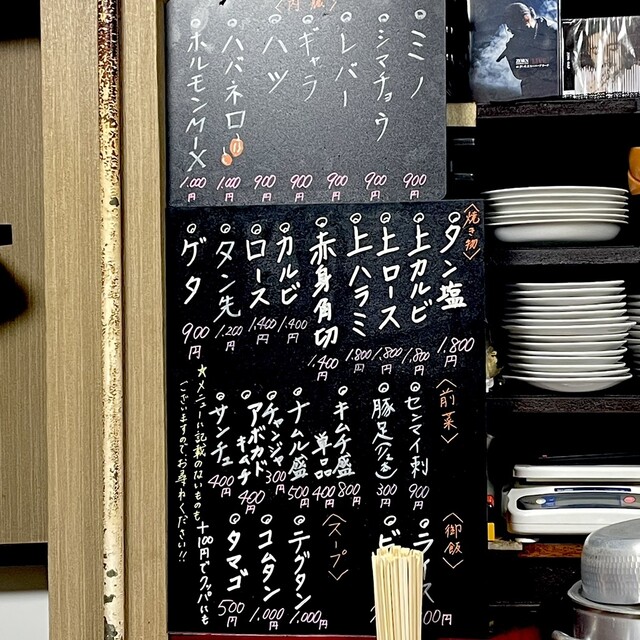 〈内臓〉
ミノ 900円
シマチョウ 900円
レバー 900円
ギャラ 900円
ハツ 900円
ハバネロ 1.000円
ホルモンMIX 1.000円
〈焼き物〉
タン塩 1.800円
上カルビ 1.800円
上ロース 1.800円
上ハラミ 1.800円
赤身角切 1.400円
カルビ 1.400円
ロース 1.400円
タン先 1.200円
ゲタ 900円
〈前菜〉
センマイ刺 900円
豚足 300円
キムチ盛 800円
単品 400円
ナムル盛 500円
チャンジャ 300円
アボカドキムチ 400円
サンチュ 400円
★メニューに記載のないものも
ございますので、お尋ねください!!
〈御飯〉
ライス 00円
ビ
〈スープ〉
テグタン 1.000円
コムタン 1.000円
タマゴ 500円
+100円でクッパにも